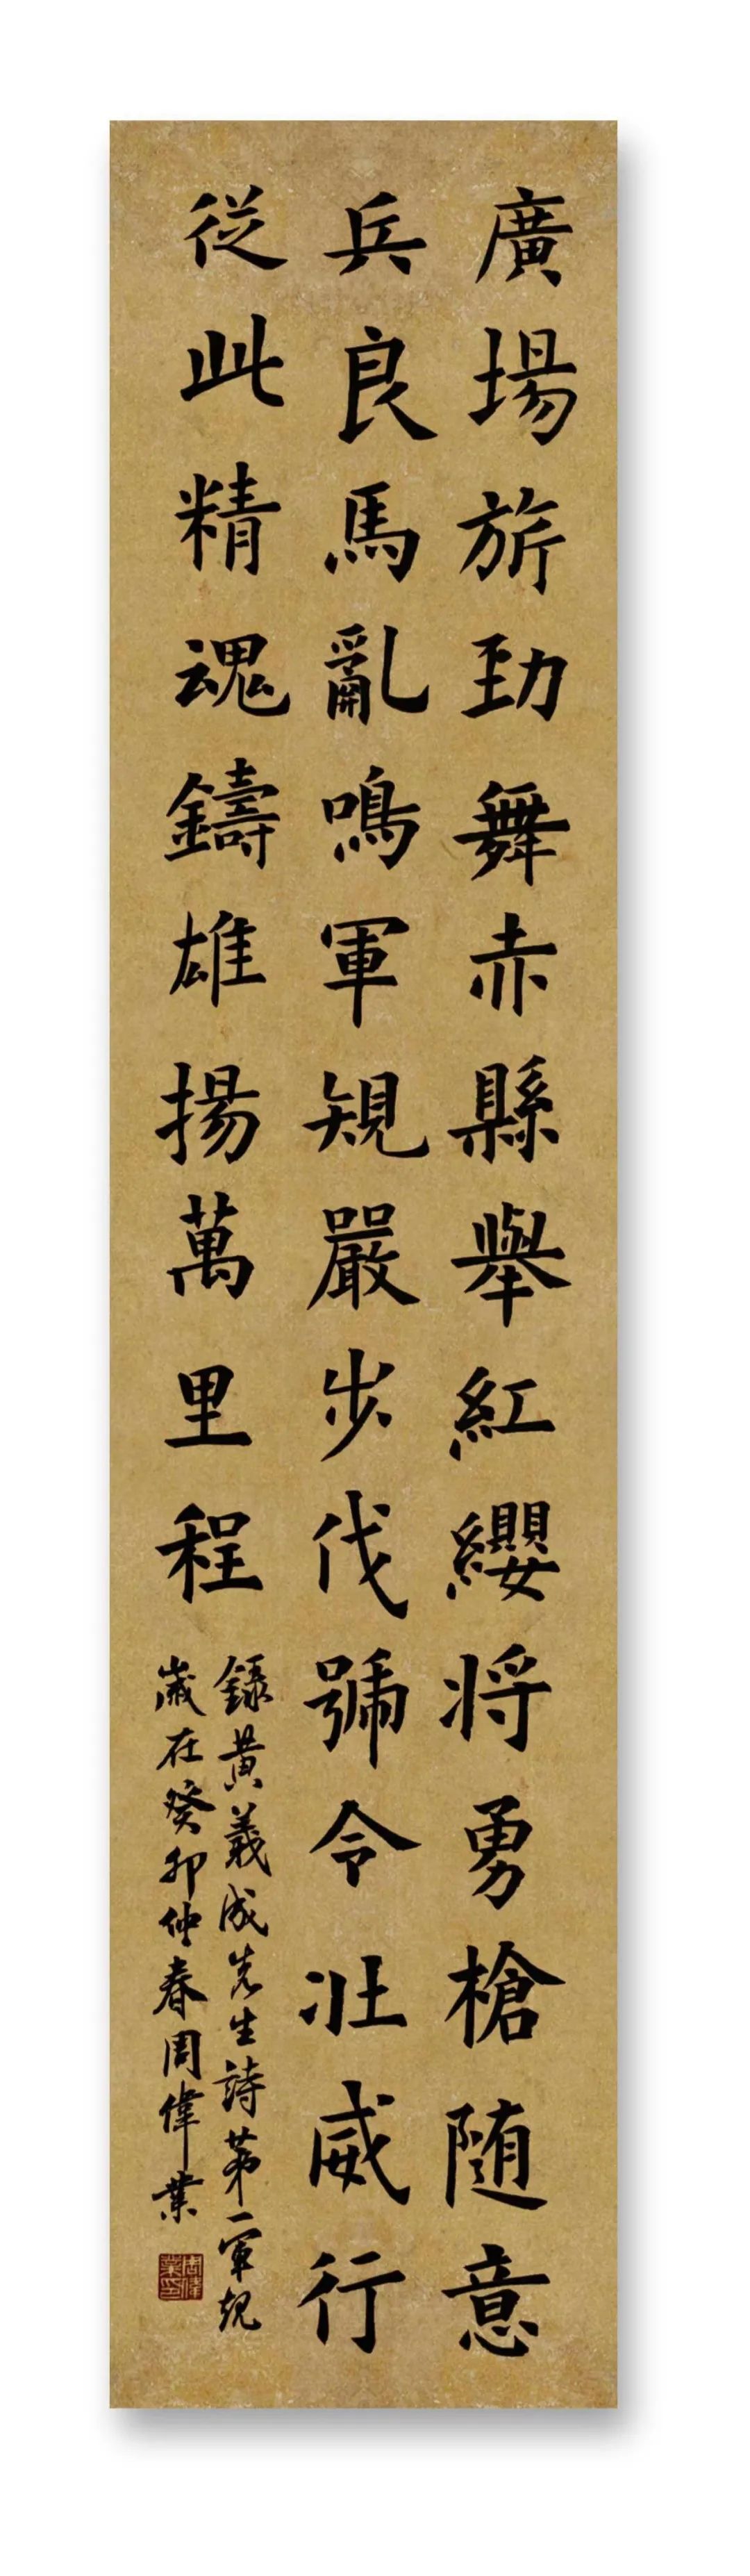 廣場旂勁舞赤縣舉紅纓将勇槍随意
兵良馬亂鳴軍規嚴步伐號令壯威行
従此精魂鑄雄揚萬里程
録黄義成先生詩第一軍規
歲在癸卯仲春周偉業
周偉業印